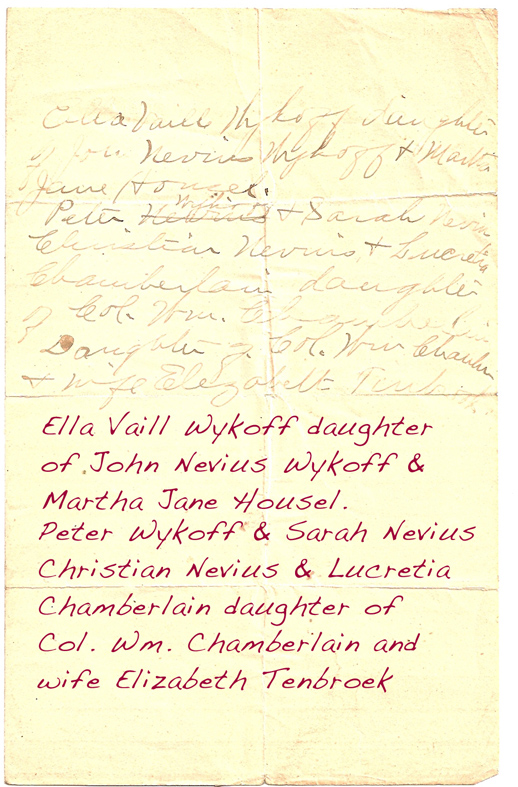 Ella Vaill Wykoff daughter
of John Nevius Wykoff & Martha
Jane Housel.
Wykoff
Peter Nevius & Sarah Nevius
Christian Nevius & Lucretia
Chamberlain daughter
of Col. Wm. Chamberlain
Daughter of Col. Wm Chamber
& wife Elezabeth Tenbroek
Ella Vaill Wykoff daughter
of John Nevius Wykoff &
Martha Jane Housel.
Peter Wykoff & Sarah Nevius
Christian Nevius & Lucretia
Chamberlain daughter of
Col. Wm. Chamberlain and
wife Elizabeth Tenbroek